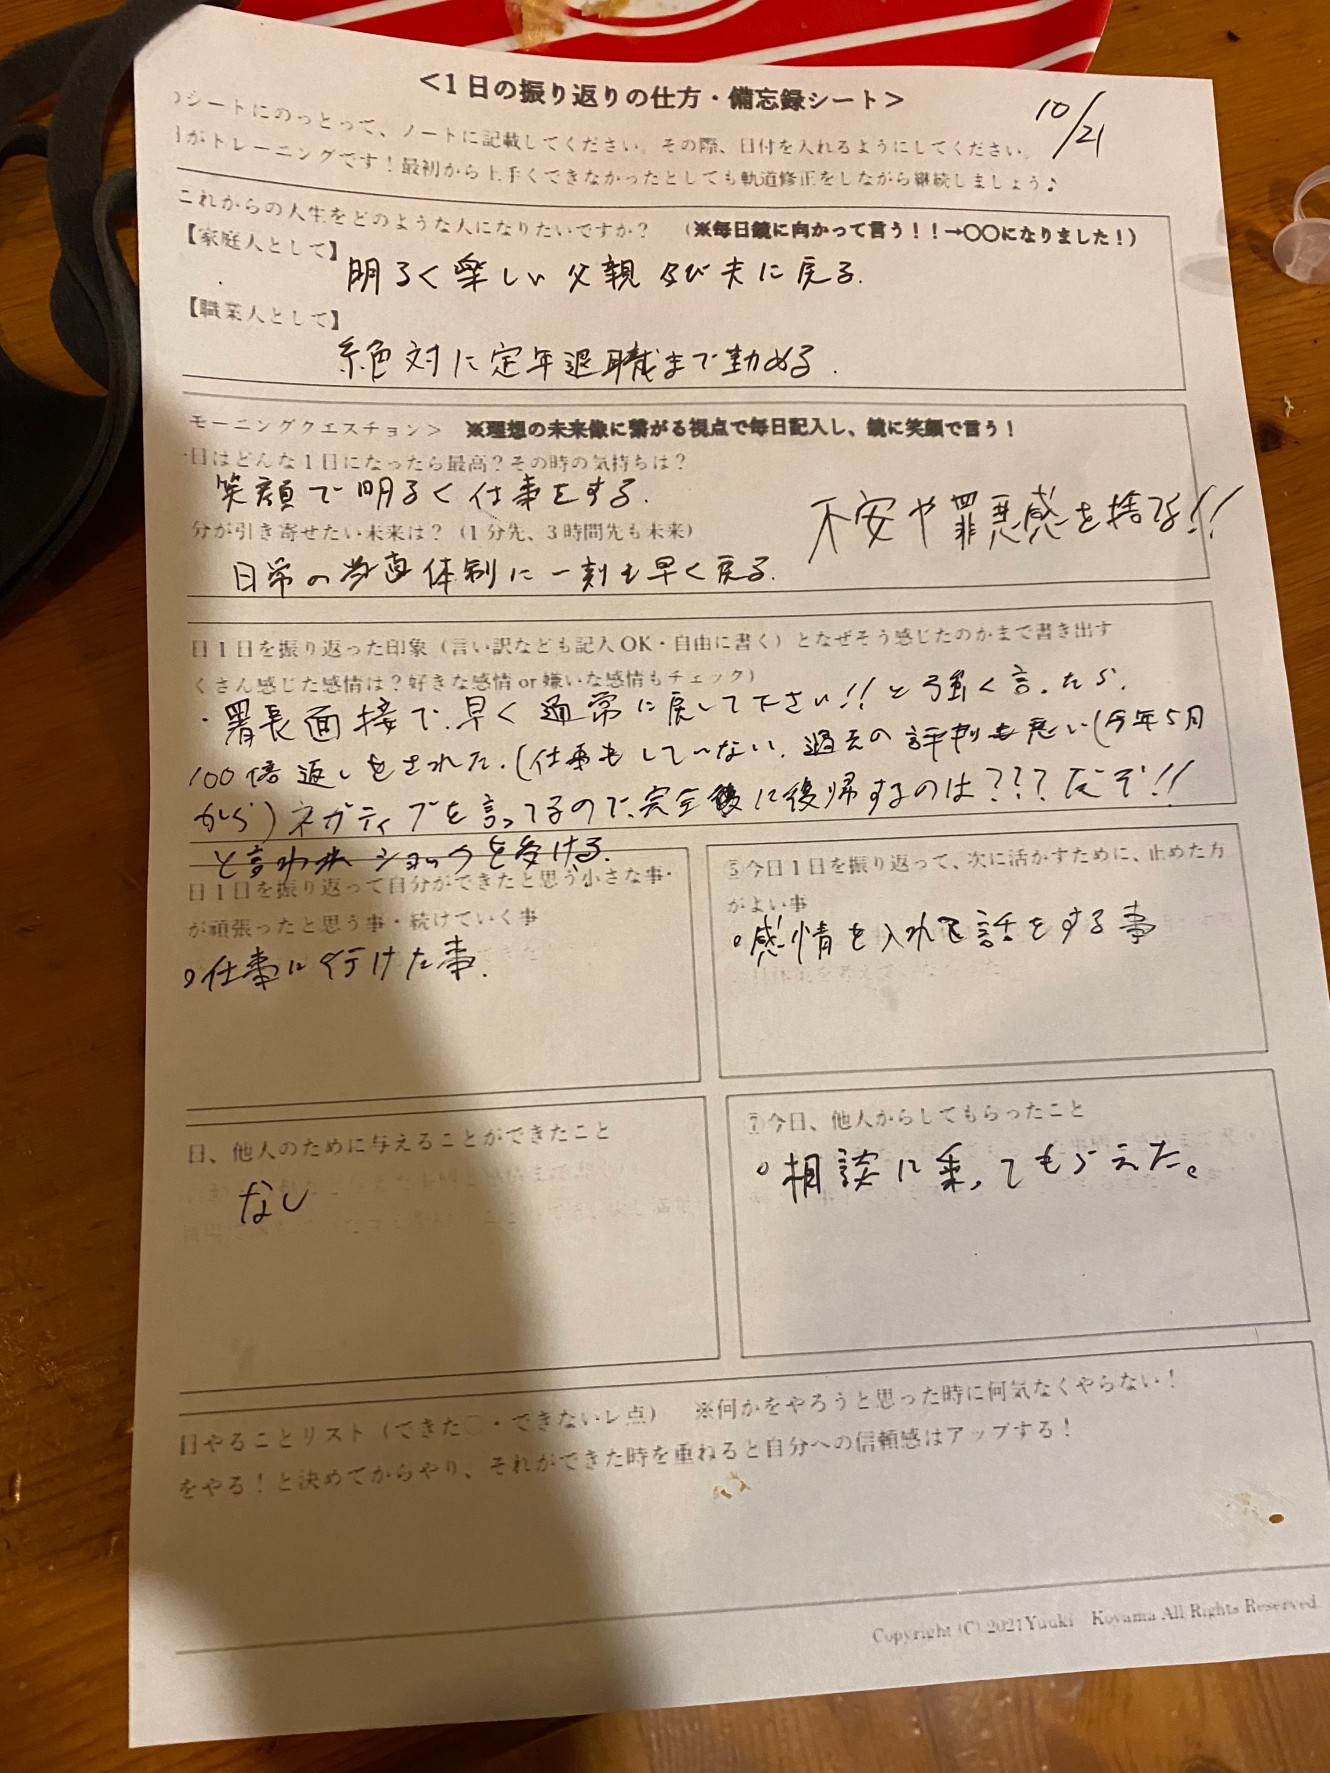 <1日の振り返りの仕方・備忘録シート>
10/21
シートにのっとって、ノートに記載してください。その際、日付を入れるようにしてください。
がトレーニングです！最初から上手くできなかったとしても軌道修正をしながら継続しましょう♪
これからの人生をどのような人になりたいですか？ （※毎日鏡に向かって言う！！→〇〇になりました！）
【家庭人として】
明るく楽しい父親及び夫に戻る.
【職業人として】
絶対に定年退職まで勤める.
モーニングクエスチョン＞ ※理想の未来像に繋がる視点で毎日記入し、鏡に笑顔で言う！
日はどんな1日になったら最高？その時の気持ちは？
笑顔で明るく仕事をする.
不安や罪悪感を捨る!!
分が引き寄せたい未来は？（1分先、3時間先も未来）
日常の当直体制に一刻も早く戻る.
日1日を振り返った印象（言い訳なども記入OK・自由に書く）となぜそう感じたのかまで書き出す
くさん感じた感情は？好きな感情or嫌いな感情もチェック）
・署長面接で、早く通常に戻して下さい!!と強く言ったら.
100倍返しをされた.(仕事もしていない.過去の評判も悪い(今年5月
から)ネガティブを言ってるので、完全復に復帰するのは???だぞ!!
と言われショックを受ける.
日1日を振り返って自分ができたと思う小さな事・
が頑張ったと思う事・続けていく事
○仕事に行けた事.
⑤今日1日を振り返って、次に活かすために、止めた方
がよい事
○感情を入れて話をする事
日、他人のために与えることができたこと
なし
⑦今日、他人からしてもらったこと
○相談に乗ってもらえた。
日やることリスト（できた〇・できないレ点） ※何かをやろうと思った時に何気なくやらない！
をやる！と決めてからやり、それができた時を重ねると自分への信頼感はアップする！
Copyright (C) 2021Yuuki Koyama All Rights Reserved.